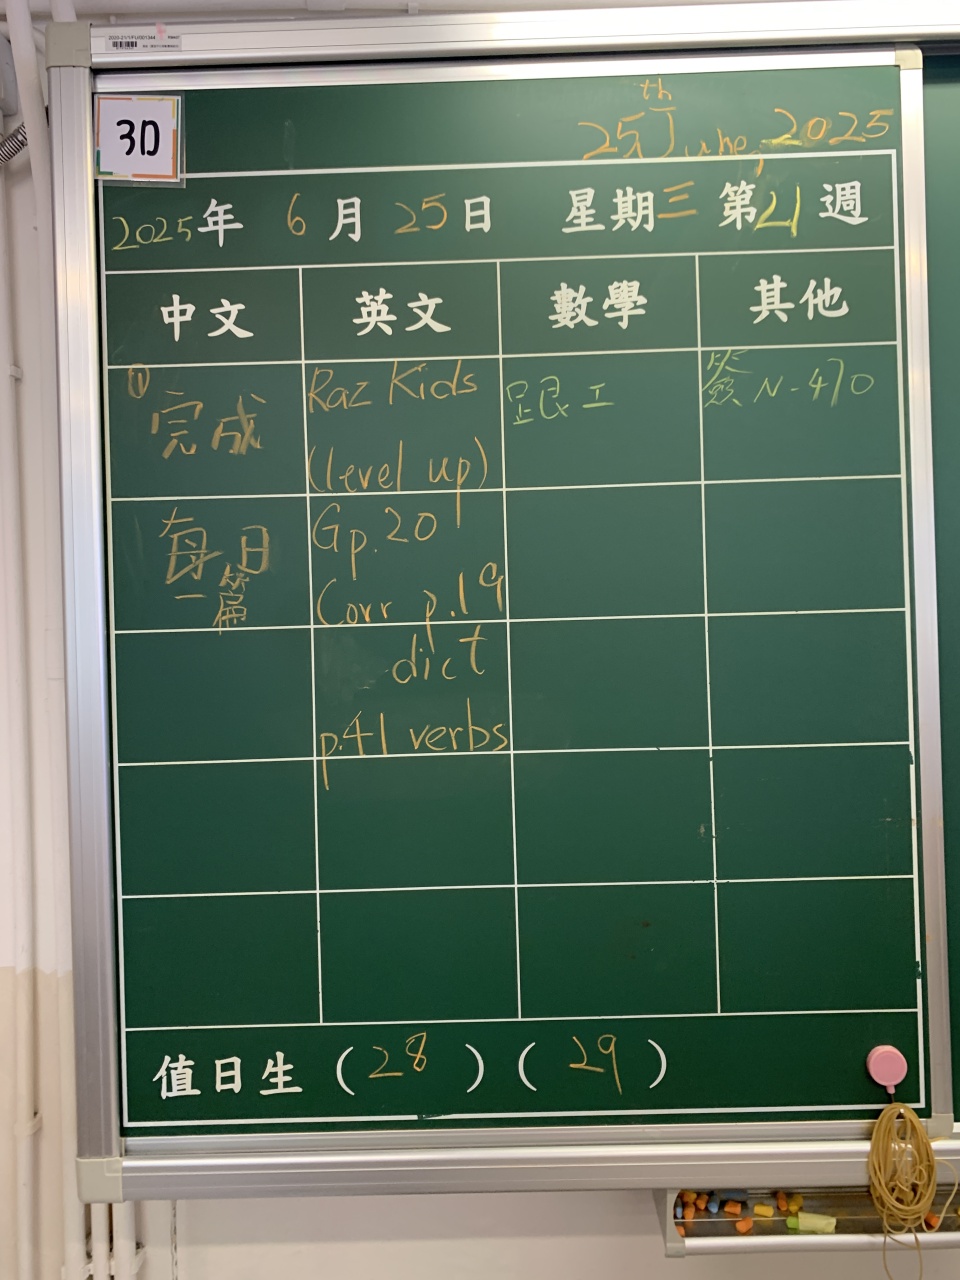 2020-21/1/FU/001344
3D
25th June, 2025
2025年 6月 25日 星期三 第21週
中文 英文 數學 其他
① 完成
每日
一篇
Raz Kids
(level up)
Gp.20
Corr p.19
dict
p.41 verbs
跟工
簽 N-470
值日生 (28) (29)